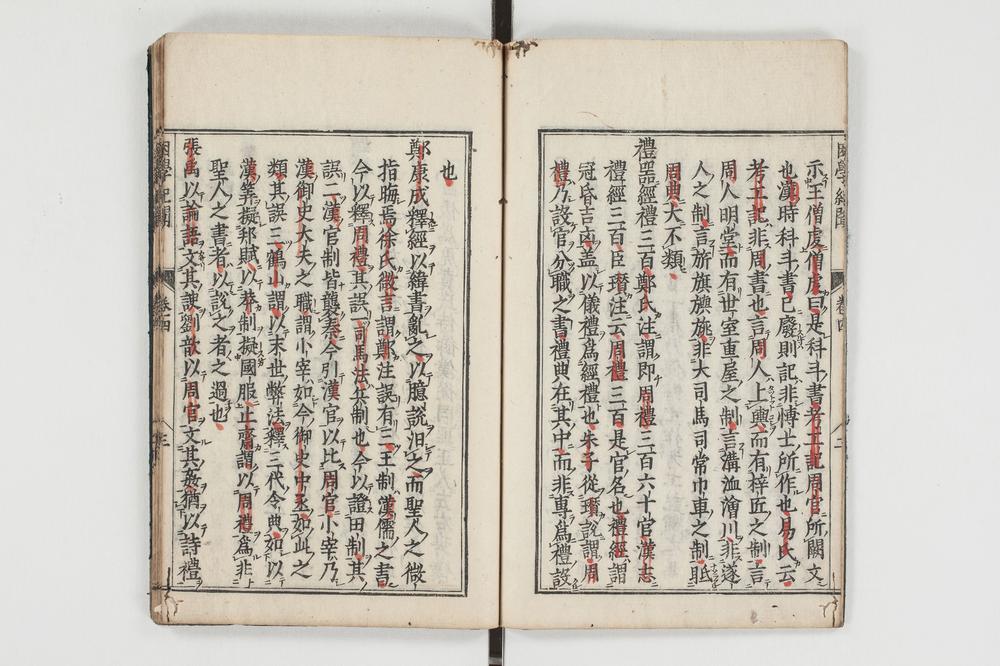 困學紀聞
卷四
示王僧虔僧虔曰是科斗書考工記周官所闕文
也漢時科斗書已廢則記非博士所作也易氏云
考工記非周書也言周人上輿而有梓匠之制言
周人明堂而有世室重屋之制言溝洫澮川非遂
人之制言旂旗旟旐非大司馬司常巾車之制
周典大不類
禮器經禮三百鄭氏注謂即周禮三百六十官漢志
禮經三百臣瓚注云周禮三百是官名也禮經謂
冠昏吉凶蓋以儀禮爲經禮也朱子從瓚說謂周
禮乃設官分職之書禮典在其中而非專爲禮設
也
鄭康成釋經以緯書亂之以臆說汩之而聖人之微
指晦焉徐氏微言謂鄭注誤有三王制漢儒之書
今以釋周禮其誤一司馬法兵制也今以證田制其
誤二漢官制皆襲秦今引漢官以比周官小宰乃
漢御史大夫之職謂小宰如今御史中丞如此之
類其誤三鶴山謂以末世弊法釋三代令典如以
漢筭擬邦賦以莽制擬國服止齋謂以周禮爲非
聖人之書者以說之者之過也
張禹以論語文其諛劉歆以周官文其姦猶以詩禮
困學紀聞
卷四
三